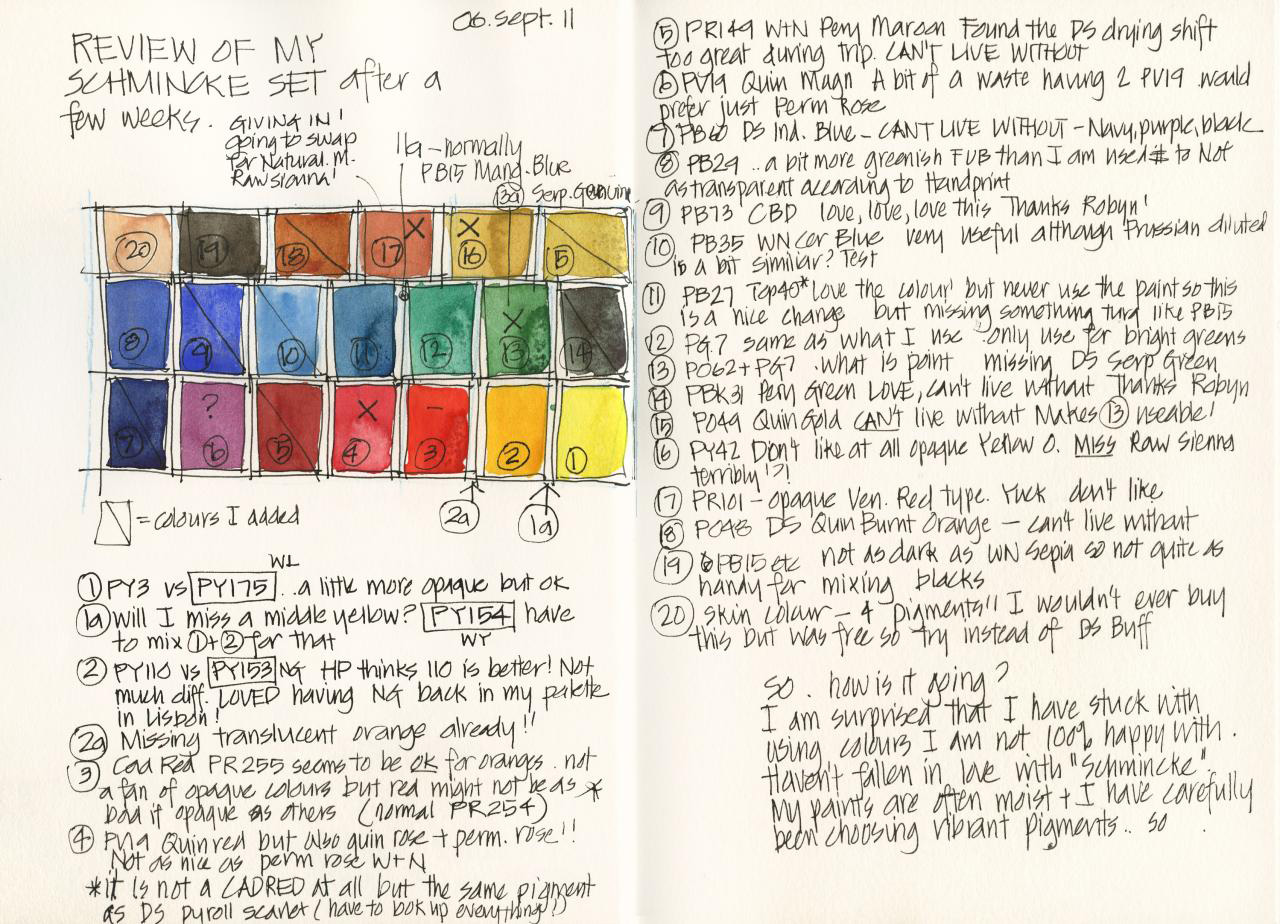 06.sept.11
REVIEW OF MY
SCHMINCKE SET after a
few weeks.
GIVING IN!
going to swap
for Natural. M.
Raw sienna!
11a - normally
PB15 Mang. Blue
13a Serp. Genuin
20 19 18 17 X X 16 15
8 9 10 11 12 X 13 14
7 ? 6 5 X 4 - 3 2 1
2a 1a
= colours I added
WL
1 PY3 vs PY175 .. a little more opaque but ok
1a will I miss a middle yellow? PY154 have
to mix 1+2 for that
WY
2 PY110 vs PY153 NG HP thinks 110 is better! Not
much diff. LOVED having NG back in my palette
in Lisbon!
2a Missing translucent orange already!!
3 Cad Red PR255 seems to be ok for oranges. not
a fan of opaque colours but red might not be as *
bad if opaque as others (normal PR254)
4 PV19 Quin red but also quin rose + perm. rose!!
Not as nice as perm rose W+N
*it is not a CADRED at all but the same pigment
as DS pyroll scarlet (have to look up everything!!)
5 PR149 W+N Pery Maroon Found the DS drying shift
too great during trip. CAN'T LIVE WITHOUT
6 PV19 Quin Magn A bit of a waste having 2 PV19 would
prefer just Perm Rose
7 PB60 DS Ind. Blue - CANT LIVE WITHOUT - Navy, purple, black
8 PB29 .. a bit more greenish FUB than I am used to Not
as transparent according to Handprint
9 PB73 CBD love, love, love this Thanks Robyn!
10 PB35 WN Cer Blue very useful although Prussian diluted
is a bit similiar? Test
11 PB27 Top40* love the colour! but never use the paint so this
is a nice change but missing something turq like PB15
12 PG7 same as what I use .. only use for bright greens
13 PO62+PG7 . what is point missing DS Serp Green
14 PBK31 Pery Green LOVE, can't live without Thanks Robyn
15 PO49 Quin Gold CAN'T live without Makes 13 useable!
16 PY42 Don't like at all opaque Yellow O. MISS Raw Sienna
terribly!?!
17 PR101 - opaque Ven. Red type. Yuck don't like
18 PO48 DS Quin Burnt Orange - can't live without
19 PB15 etc not as dark as WN Sepia so not quite as
handy for mixing blacks
20 skin colour - 4 pigments!! I wouldn't ever buy
this but was free so try instead of DS Buff
so . how is it going?
I am surprised that I have stuck with
using colours I am not 100% happy with.
Haven't fallen in love with "Schmincke".
My paints are often moist + I have carefully
been choosing vibrant pigments .. so .